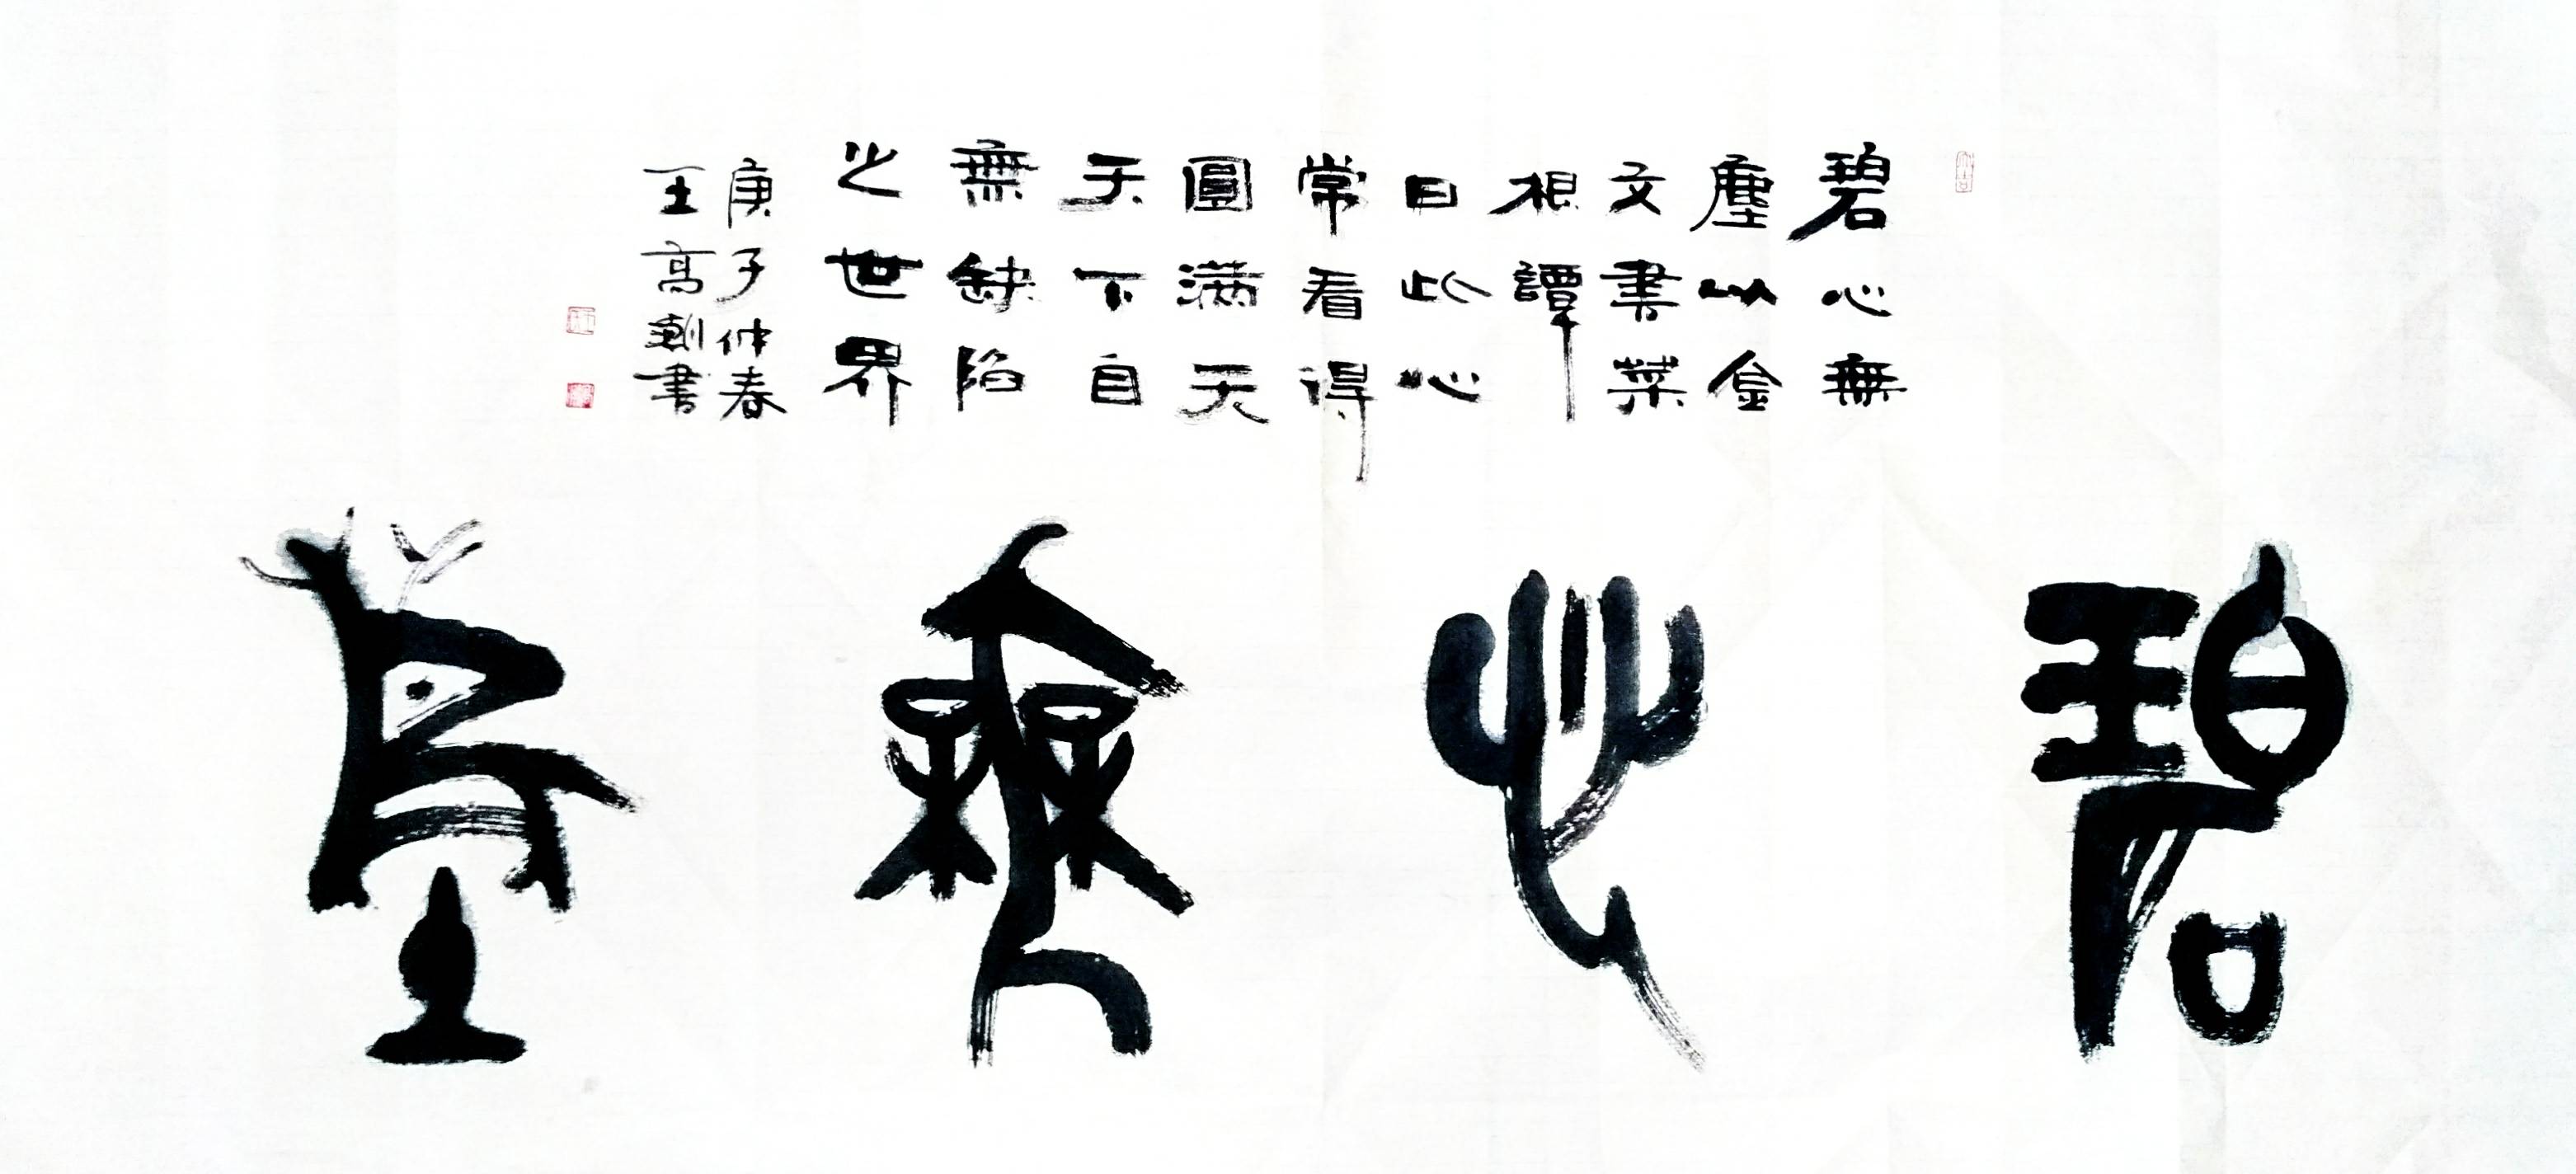 碧心無塵
碧心無
塵以金
文書菜
根譚
曰此心
常看得
圓滿天
天下自
無缺陷
之世界
庚子仲春
王高剴書